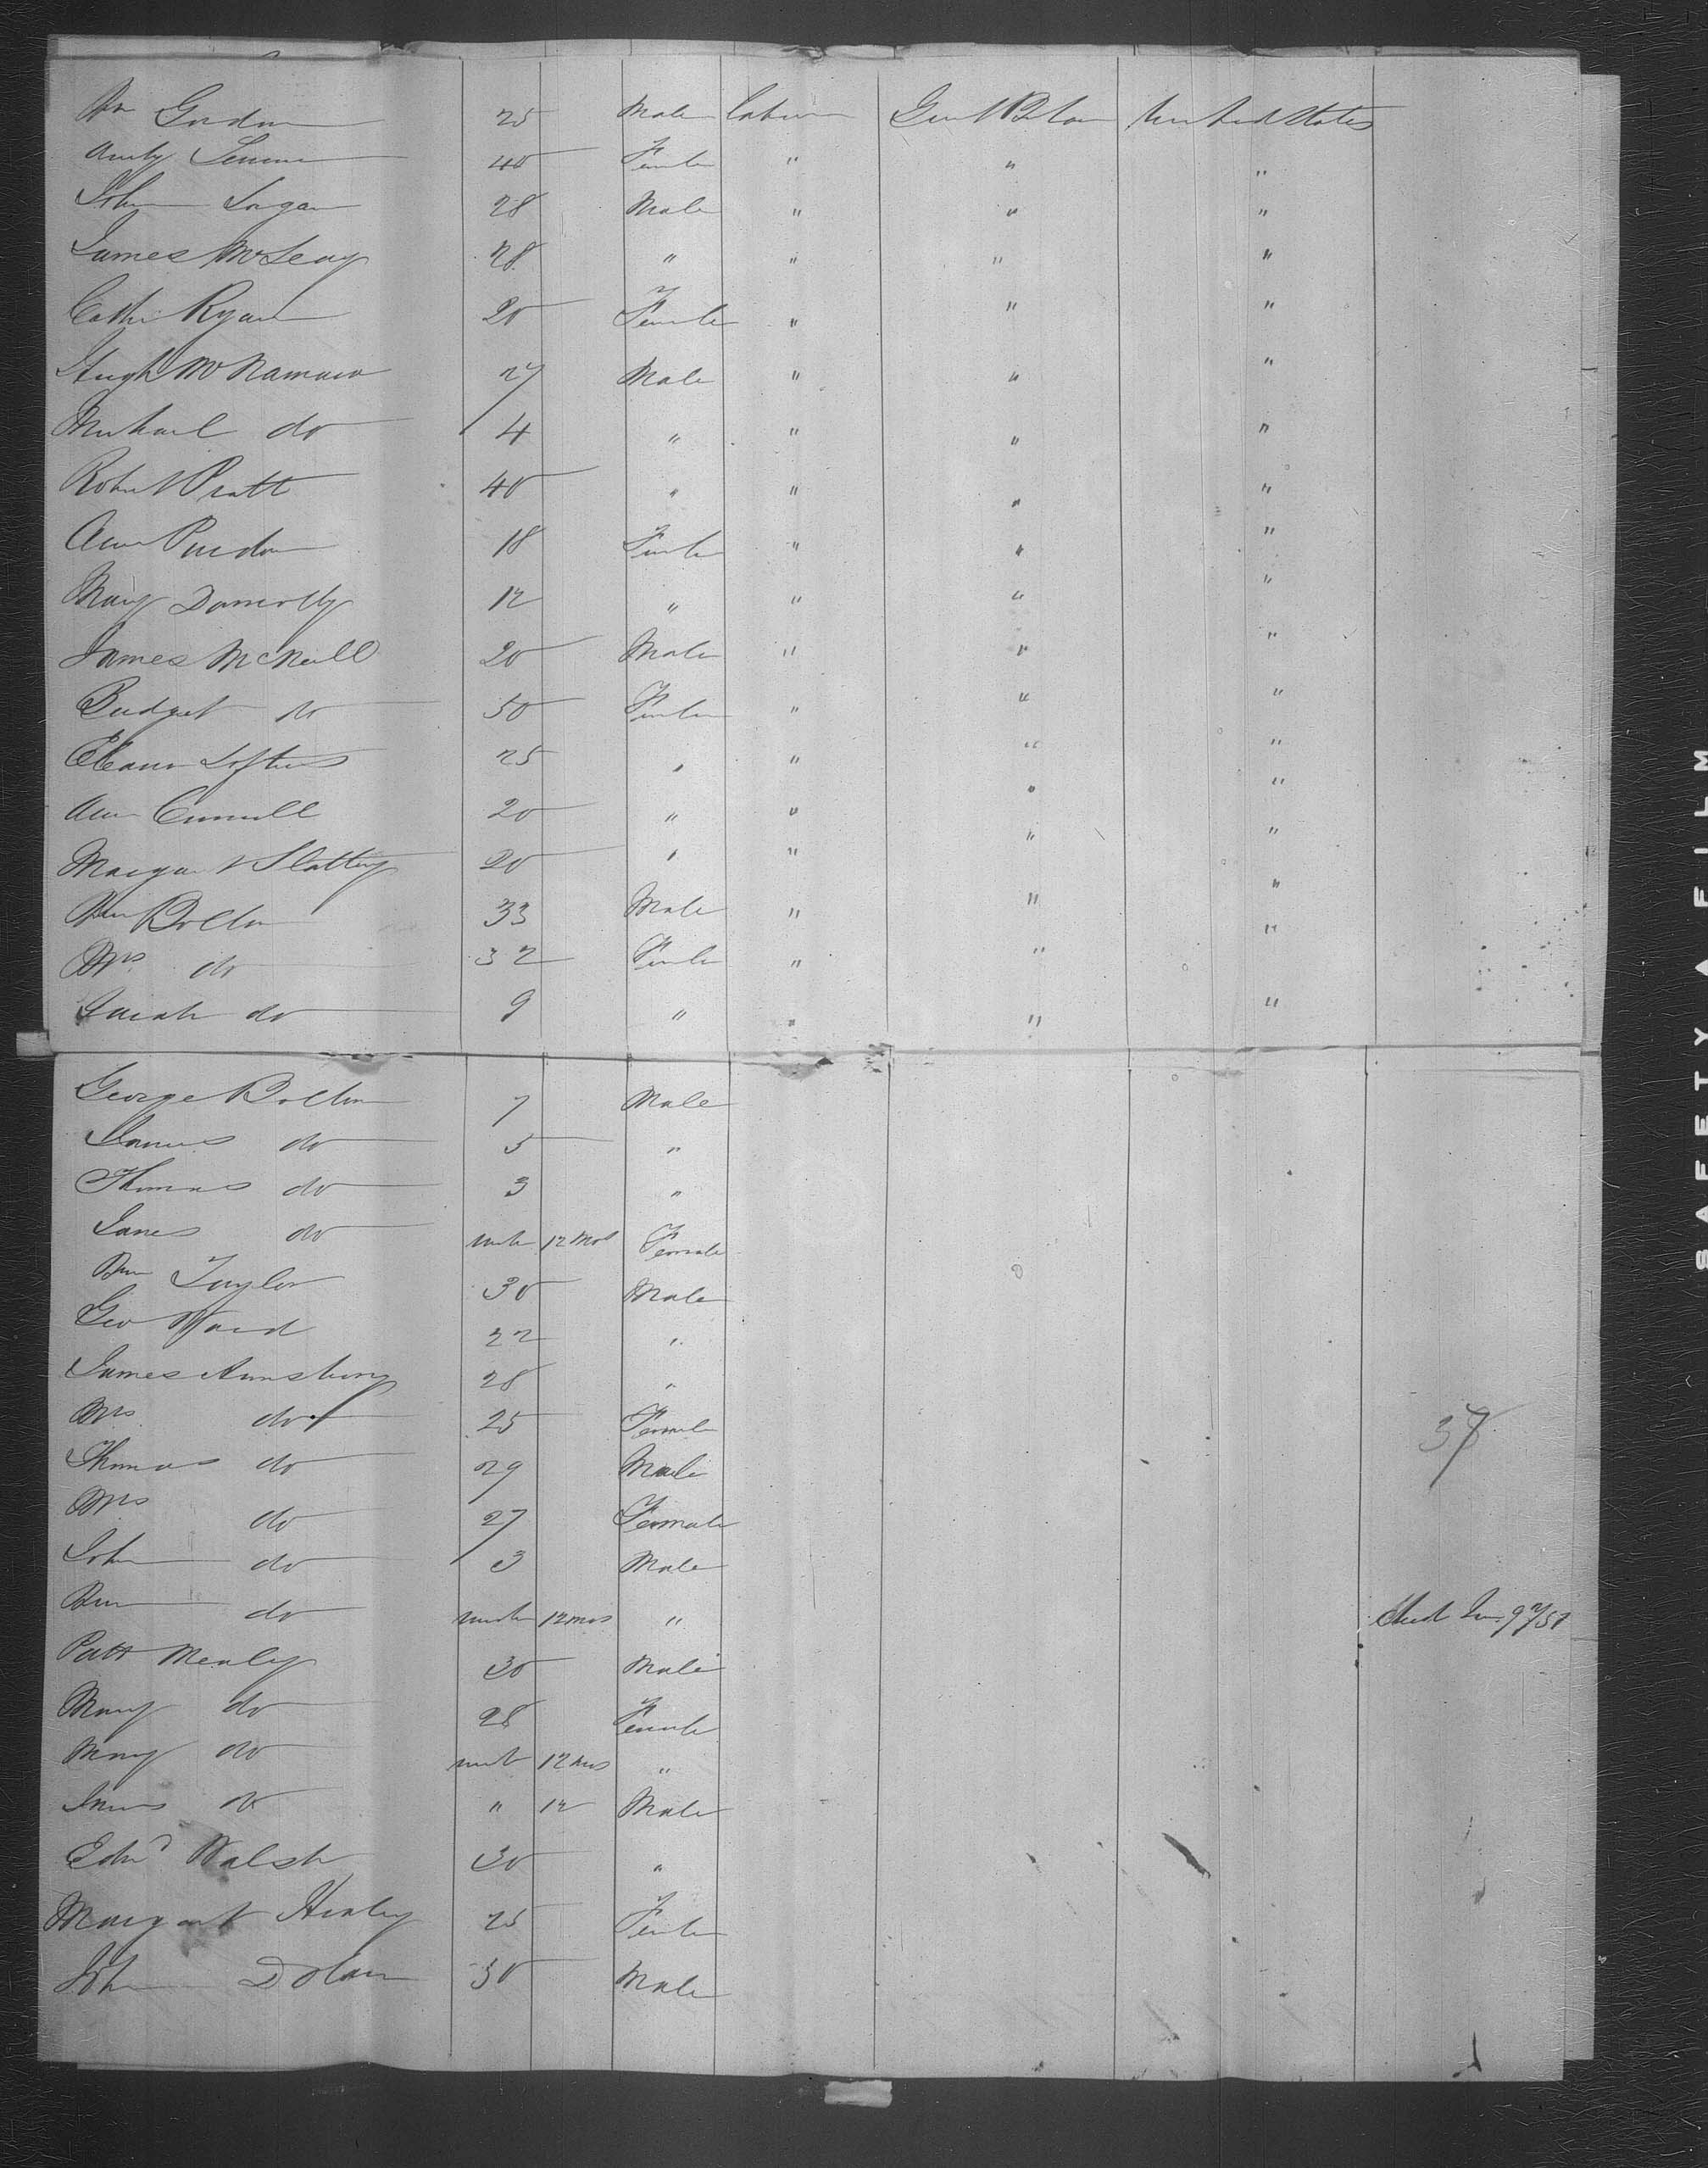 Wm Gordon 25 Male labour Great Britain United States
Lennon 40 Female " " "
John Logan 28 Male " " "
James McLeay 28 " " " "
Cathe Ryan 20 Female " " "
Hugh McNamara 27 Male " " "
Michael do 4 " " " "
Robert Pratt 40 " " " "
Ann Purdon 18 Female " " "
Mary Donnolly 12 " " " "
James McNeill 20 Male " " "
Bridget do 50 Female " " "
Eleanor Loftus 25 " " " "
Ann 20 " " " "
Margaret Slattery 20 " " " "
Wm Bolton 33 Male " " "
Mrs do 32 Female " " "
Sarah do 9 " " " "
George Bolton 7 Male
James do 5 "
Thomas do 3 "
Jane do under 12 Mos Female
Wm Taylor 30 Male
Geo Ward 22 "
James Armsbury 28 "
Mrs do 25 Female
Thomas do 29 Male
Mrs do 27 Female
John do 3 Male
Wm do under 12 mos " Died 9
Patt Mealey 30 Male
Mary do 28 Female
Mary do under 12 mos "
James do " 12 Male
Edwd Walsh 30 "
Margaret Healey 25 Female
John Dolan 30 Male
SAFETY A FILM